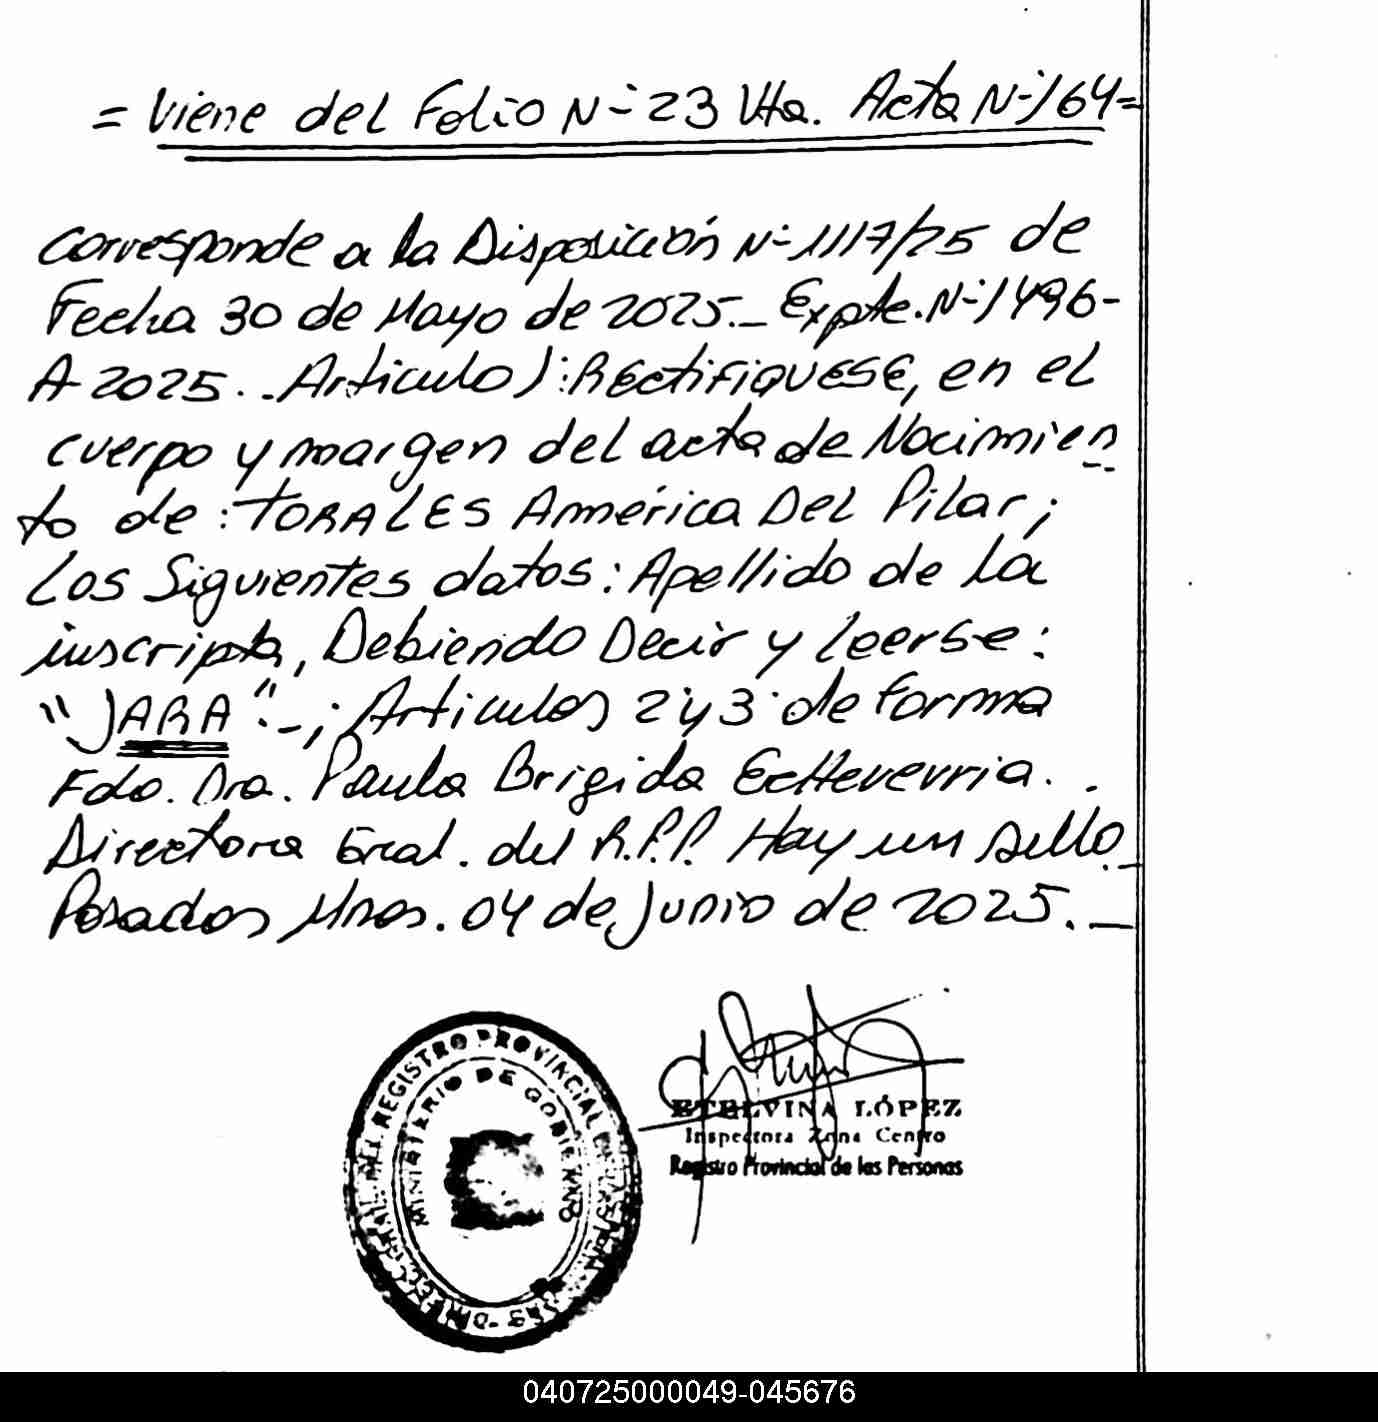 = Viene del Folio N- 23 Vta. Acta N-164=
corresponde a la Disposición N- 1117/25 de
Fecha 30 de Mayo de 2025._ Expte. N-1496-
A-2025._ Articulo 1: RECTIFIQUESE, en el
cuerpo y margen del acta de Nacimien
to de: TORALES América Del Pilar;
Los Siguientes datos: Apellido de la
inscripta, Debiendo Decir y leerse:
"JARA"._; Articulos 2 y 3 de Forma
Fdo. Dra. Paula Brigida Echeverria.
Directora Gral. del R.P.P. Hay un sello
Posadas Mnes. 04 de Junio de 2025._
REGISTRO PROVINCIAL
MINISTERIO DE GOBIERNO
ETELVINA LÓPEZ
Inspectora Zona Centro
Registro Provincial de las Personas
040725000049-045676